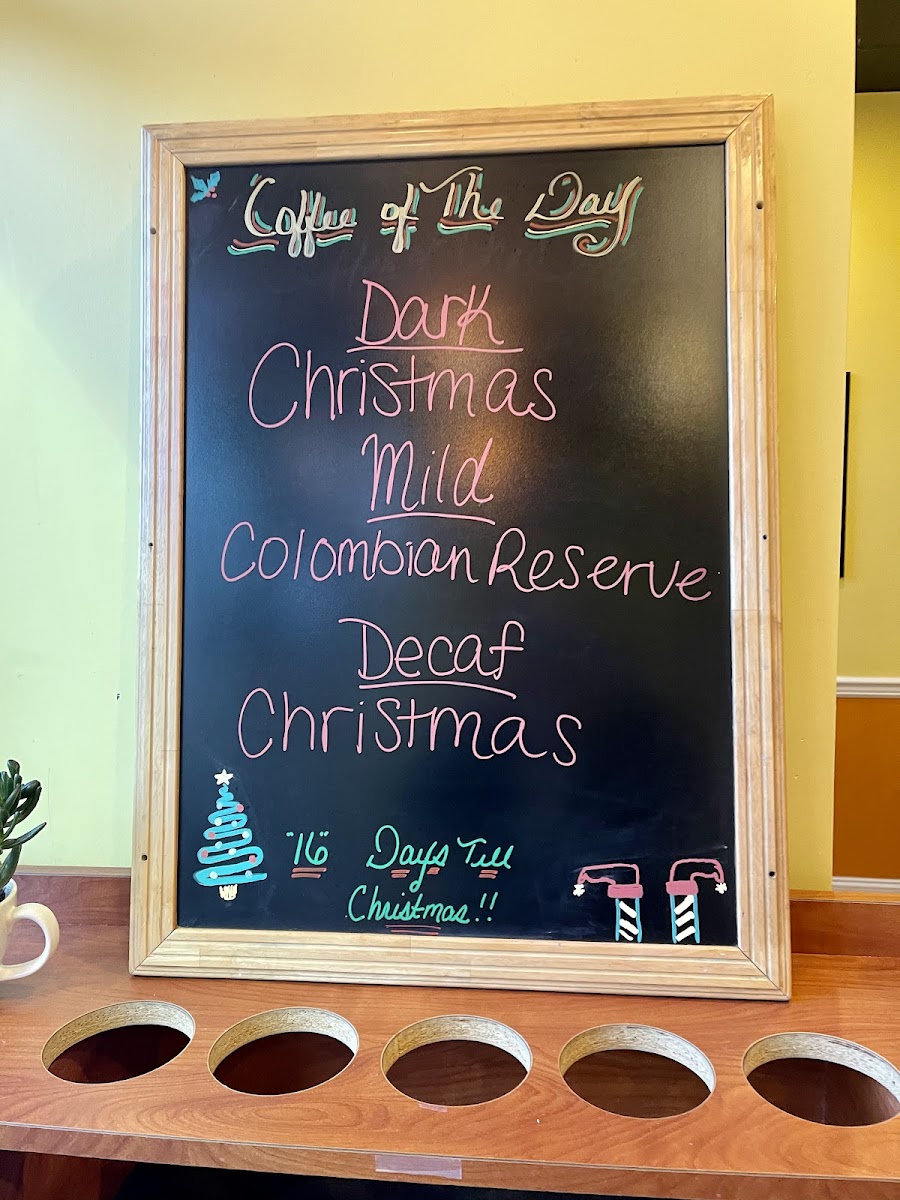 Coffee of The Day
Dark
Christmas
Mild
Colombian Reserve
Decaf
Christmas
"16" Days Till
Christmas!!